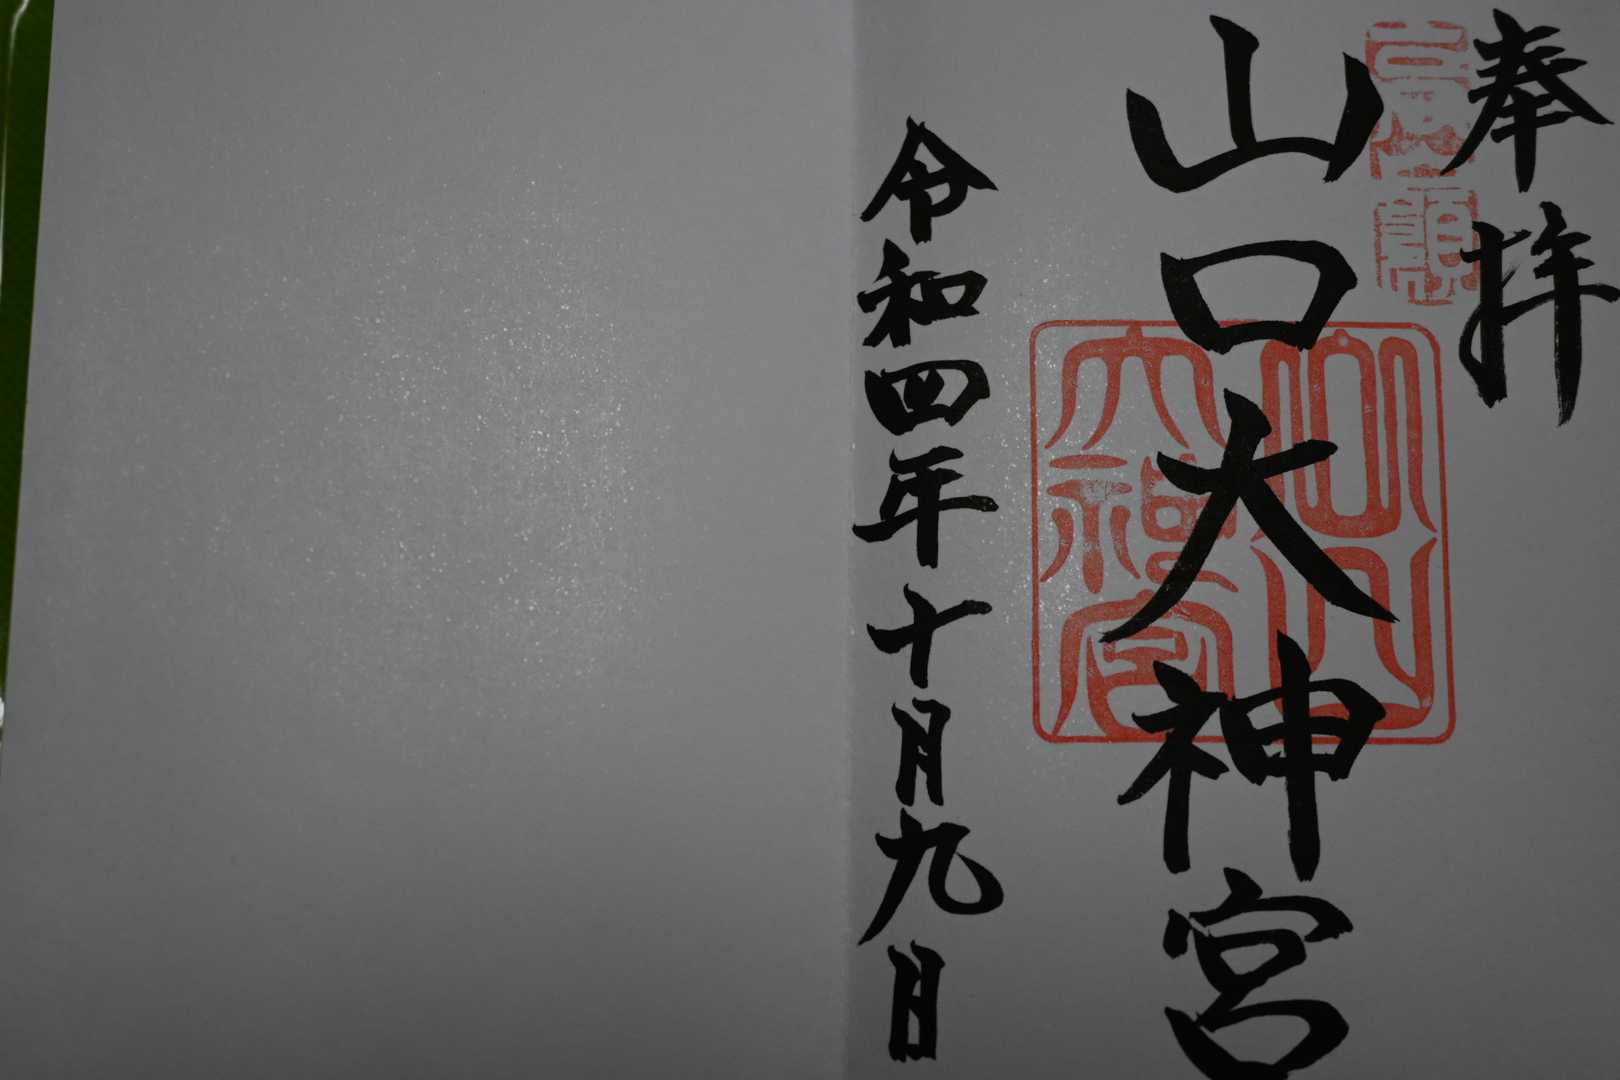 奉拝
山口大神宮
山口大神宮
令和四年十月九日